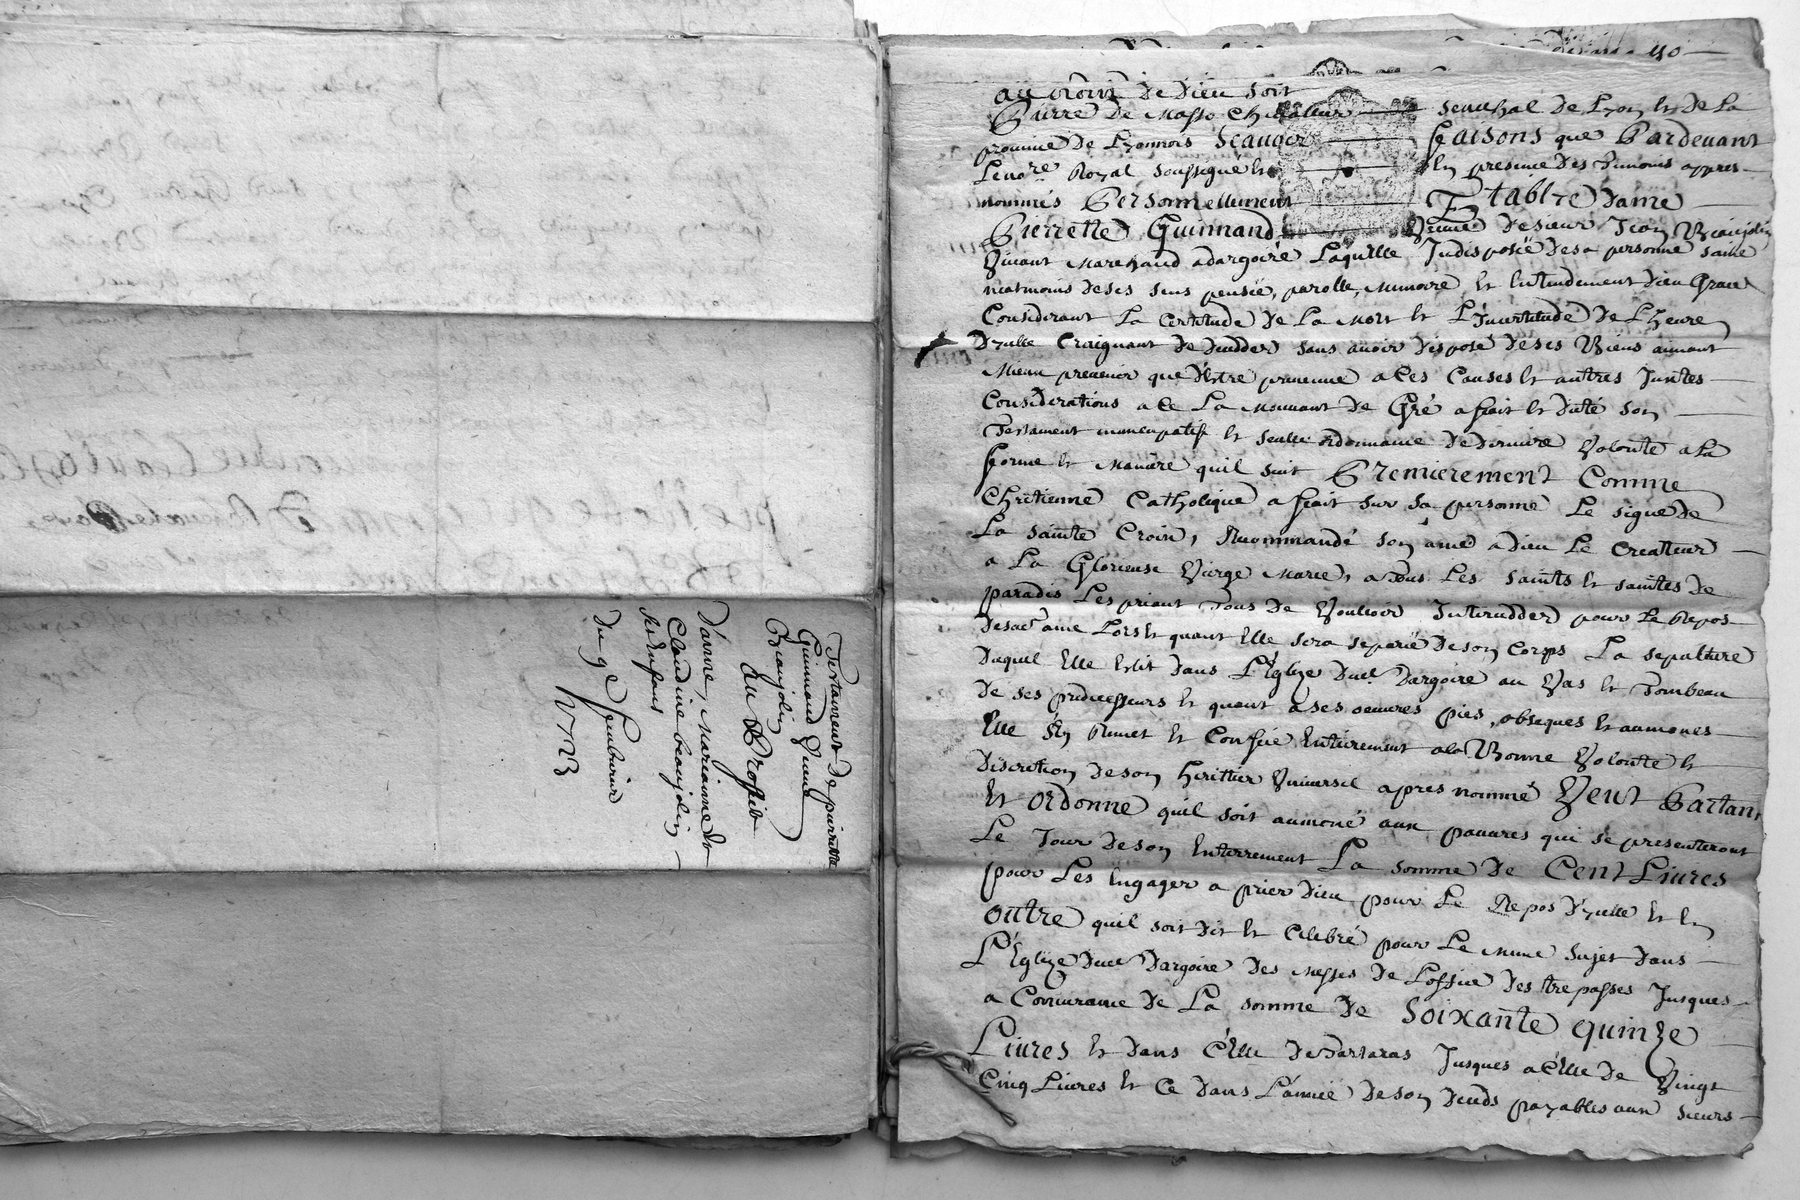 Testament de pierrette
Guinnand Veuve
Beaujolin
au Proffit
D'anne, Marianne et
Claudine beaujolin
ses Enfans
Du 9e
1723
au nom De Dieu soit
Pierre De Masso Chevallier senechal de Lyon et De La
province De Lyonnois Scauoir faisons que Pardeuant
Le nore Royal soussigné et En presence Des Temoins appres
nommés Personnellement Establie Dame
Pierrette Guinnand Veuue De sieur Jean Beaujolin
Viuant Marchand a dargoiré Laquelle Indisposeé De sa personne saine
neatmoins De ses sens penseé, parolle, Memoire et Entendement Dieu Grace
Considerant La Certitude De La Mort et L'Incertitude De L'heure
D'ycelle Craignant De Deceder sans auoir Disposé De ses Biens aimant
Mieux preuenir que D'Estre preuenue a Ces Causes et autres Justes
Considerations a Ce La Mouuant De Gré a fait et Dicté son
Testament nuncupatif et seulle ordonnance De Derniere Volonté a La
forme et Maniere quil suit Premierement Comme
Chretienne Catholique a fait sur sa personne Le signe De
La sainte Croix, Recommandé son ame a Dieu Le Createur
a La Glorieuse Vierge Marie, a Tous Les saints et saintes De
paradis Les priant Tous De Vouloir Interceder pour Le Repos
De sad ame Lors et quant Elle sera separeé De son Corps La sepulture
Duquel Elle Eslit Dans L'Eglize Dud. Dargoire au Vas et Tombeau
De ses predecesseurs et quant a ses oeuures pies, obseques et aumones
Elle s'En Remet et Confie Entierement a la Bonne Volonté et
Discretion De son heritier Vniuersel apres nommé Veut Partant
Et ordonne quil soit aumoné aux pauures qui se presenteront
Le Jour De son Enterrement La somme De Cent Liures
pour Les Engager a prier Dieu pour Le Repos D'ycelle Et En
outre quil soit Dit et Celebré pour Le Meme sujet Dans
L'Eglize Dud Dargoire Des Messes De L'office Des trepasses Jusques
a Concurance De La somme De Soixante quinze
Liures Et Dans Celle De Dartaras Jusques a Celle De Vingt
Cinq Liures et Ce Dans L'anneé De son Deceds payables aux sieurs